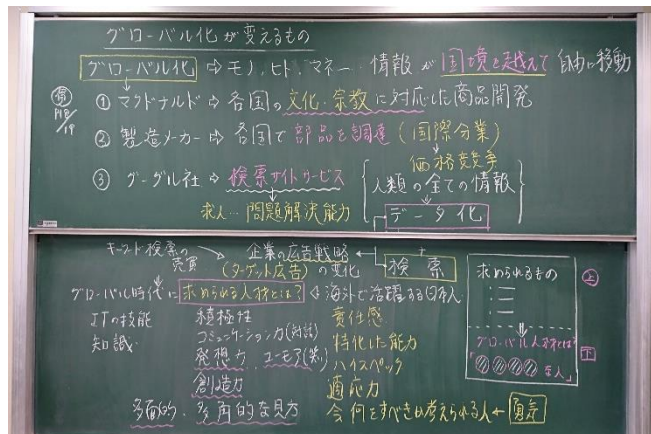 グローバル化が変えるもの
グローバル化 ⇨ モノ、ヒト、マネー、情報が国境を越えて自由に移動
① マクドナルド ⇨ 各国の文化・宗教に対応した商品開発
② 製造メーカー ⇨ 各国で部品を調達(国際分業)
価格競争
③ グーグル社 ⇨ 検索サイトサービス
人類の全ての情報
求人… 問題解決能力
データ化
+
検索
キーワード検索の売買
企業の広告戦略
(ターゲット広告)の変化
グローバル時代に求められる人材とは? ⇦ 海外で活躍する日本人
ITの技能
知識
積極性
コミュニケーション力(対話)
発想力 ユーモア(笑)
創造力
多面的・多角的な見方
責任感
特化した能力
ハイスペック
適応力
今何をすべきか考えられる人 ←
求められるもの
上
グローバル人材とは?
「 な人」
下